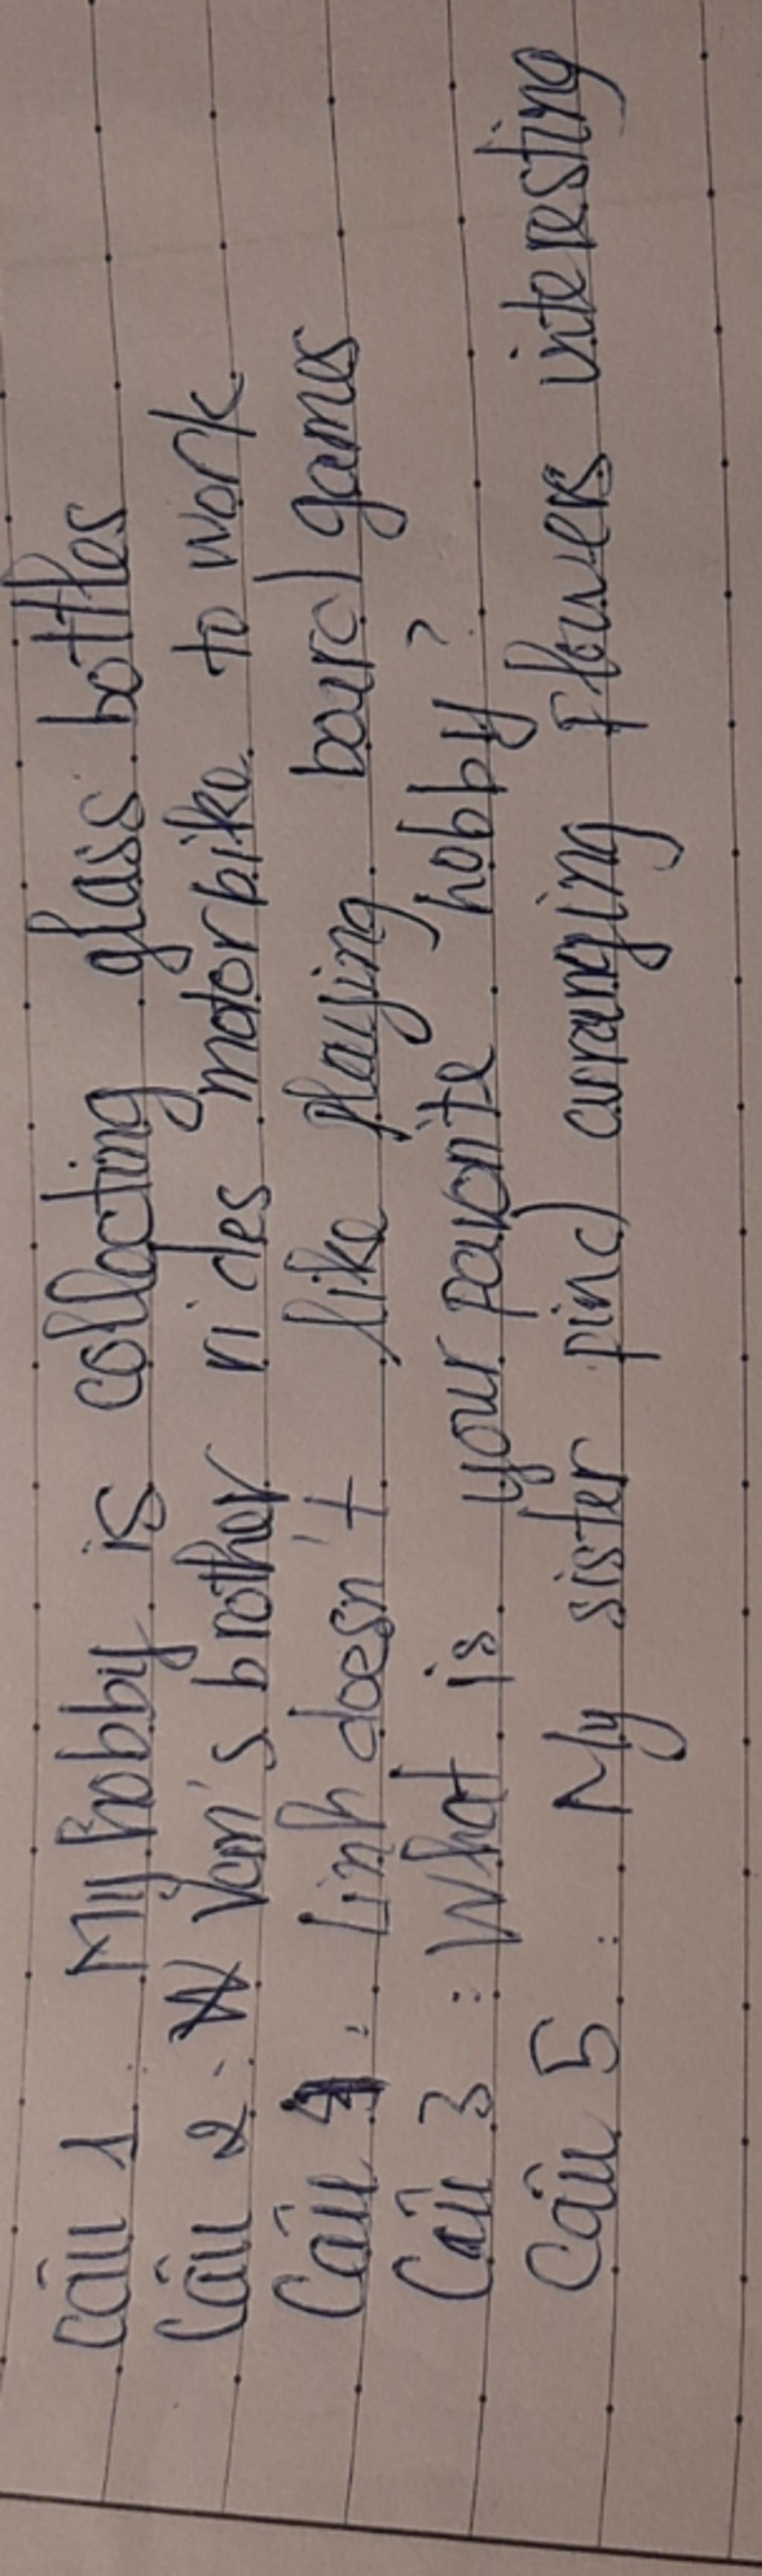 Câu 1 : My hobby is collecting glass bottles
Câu 2 : Van's brother rides motorbike to work
Câu 4 : Linh doesn't like playing board games
Câu 3 : What is your favorite hobby ?
Câu 5 : My sister find arranging flowers interesting